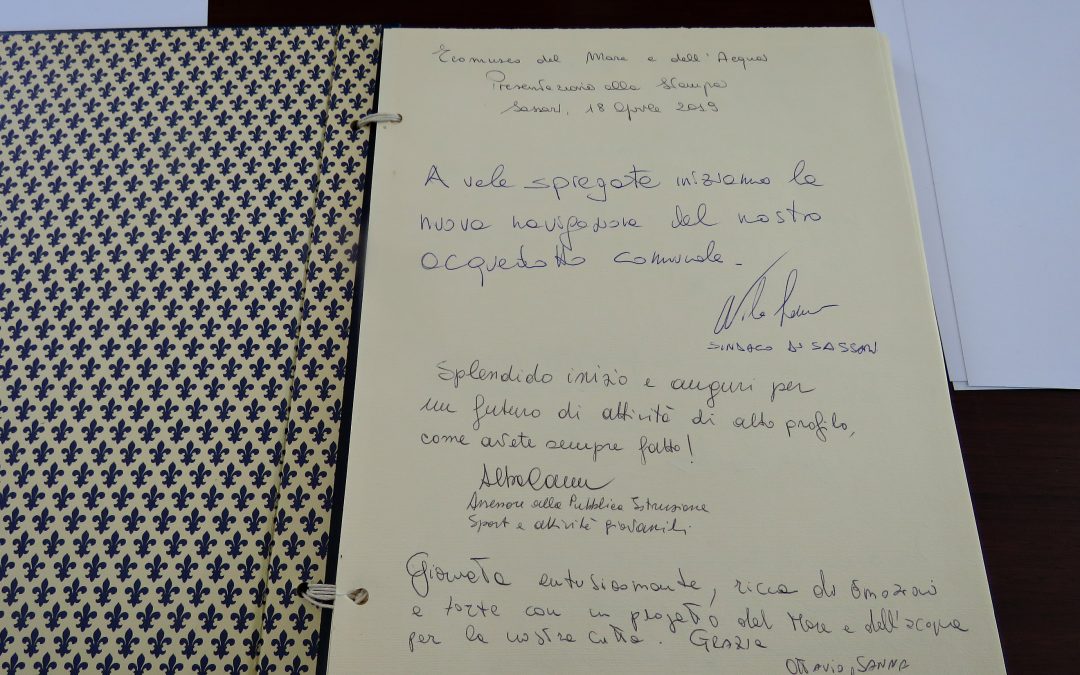 Ecomuseo del Mare e dell'Acqua
Presentazione alla Stampa
Sassari, 18 Aprile 2019
A vele spiegate iniziamo la
nuova navigazione del nostro
acquedotto comunale.
SINDACO DI SASSARI
Splendido inizio e auguri per
un futuro di attività di alto profilo,
come avete sempre fatto!
Alba Canu
Assessore alla Pubblica Istruzione
Sport e attività giovanili
Giornata entusiasmante, ricca di Emozioni
e forte con un progetto del Mare e dell'acqua
per la nostra città. GRAZIE
OTTAVIO SANNA